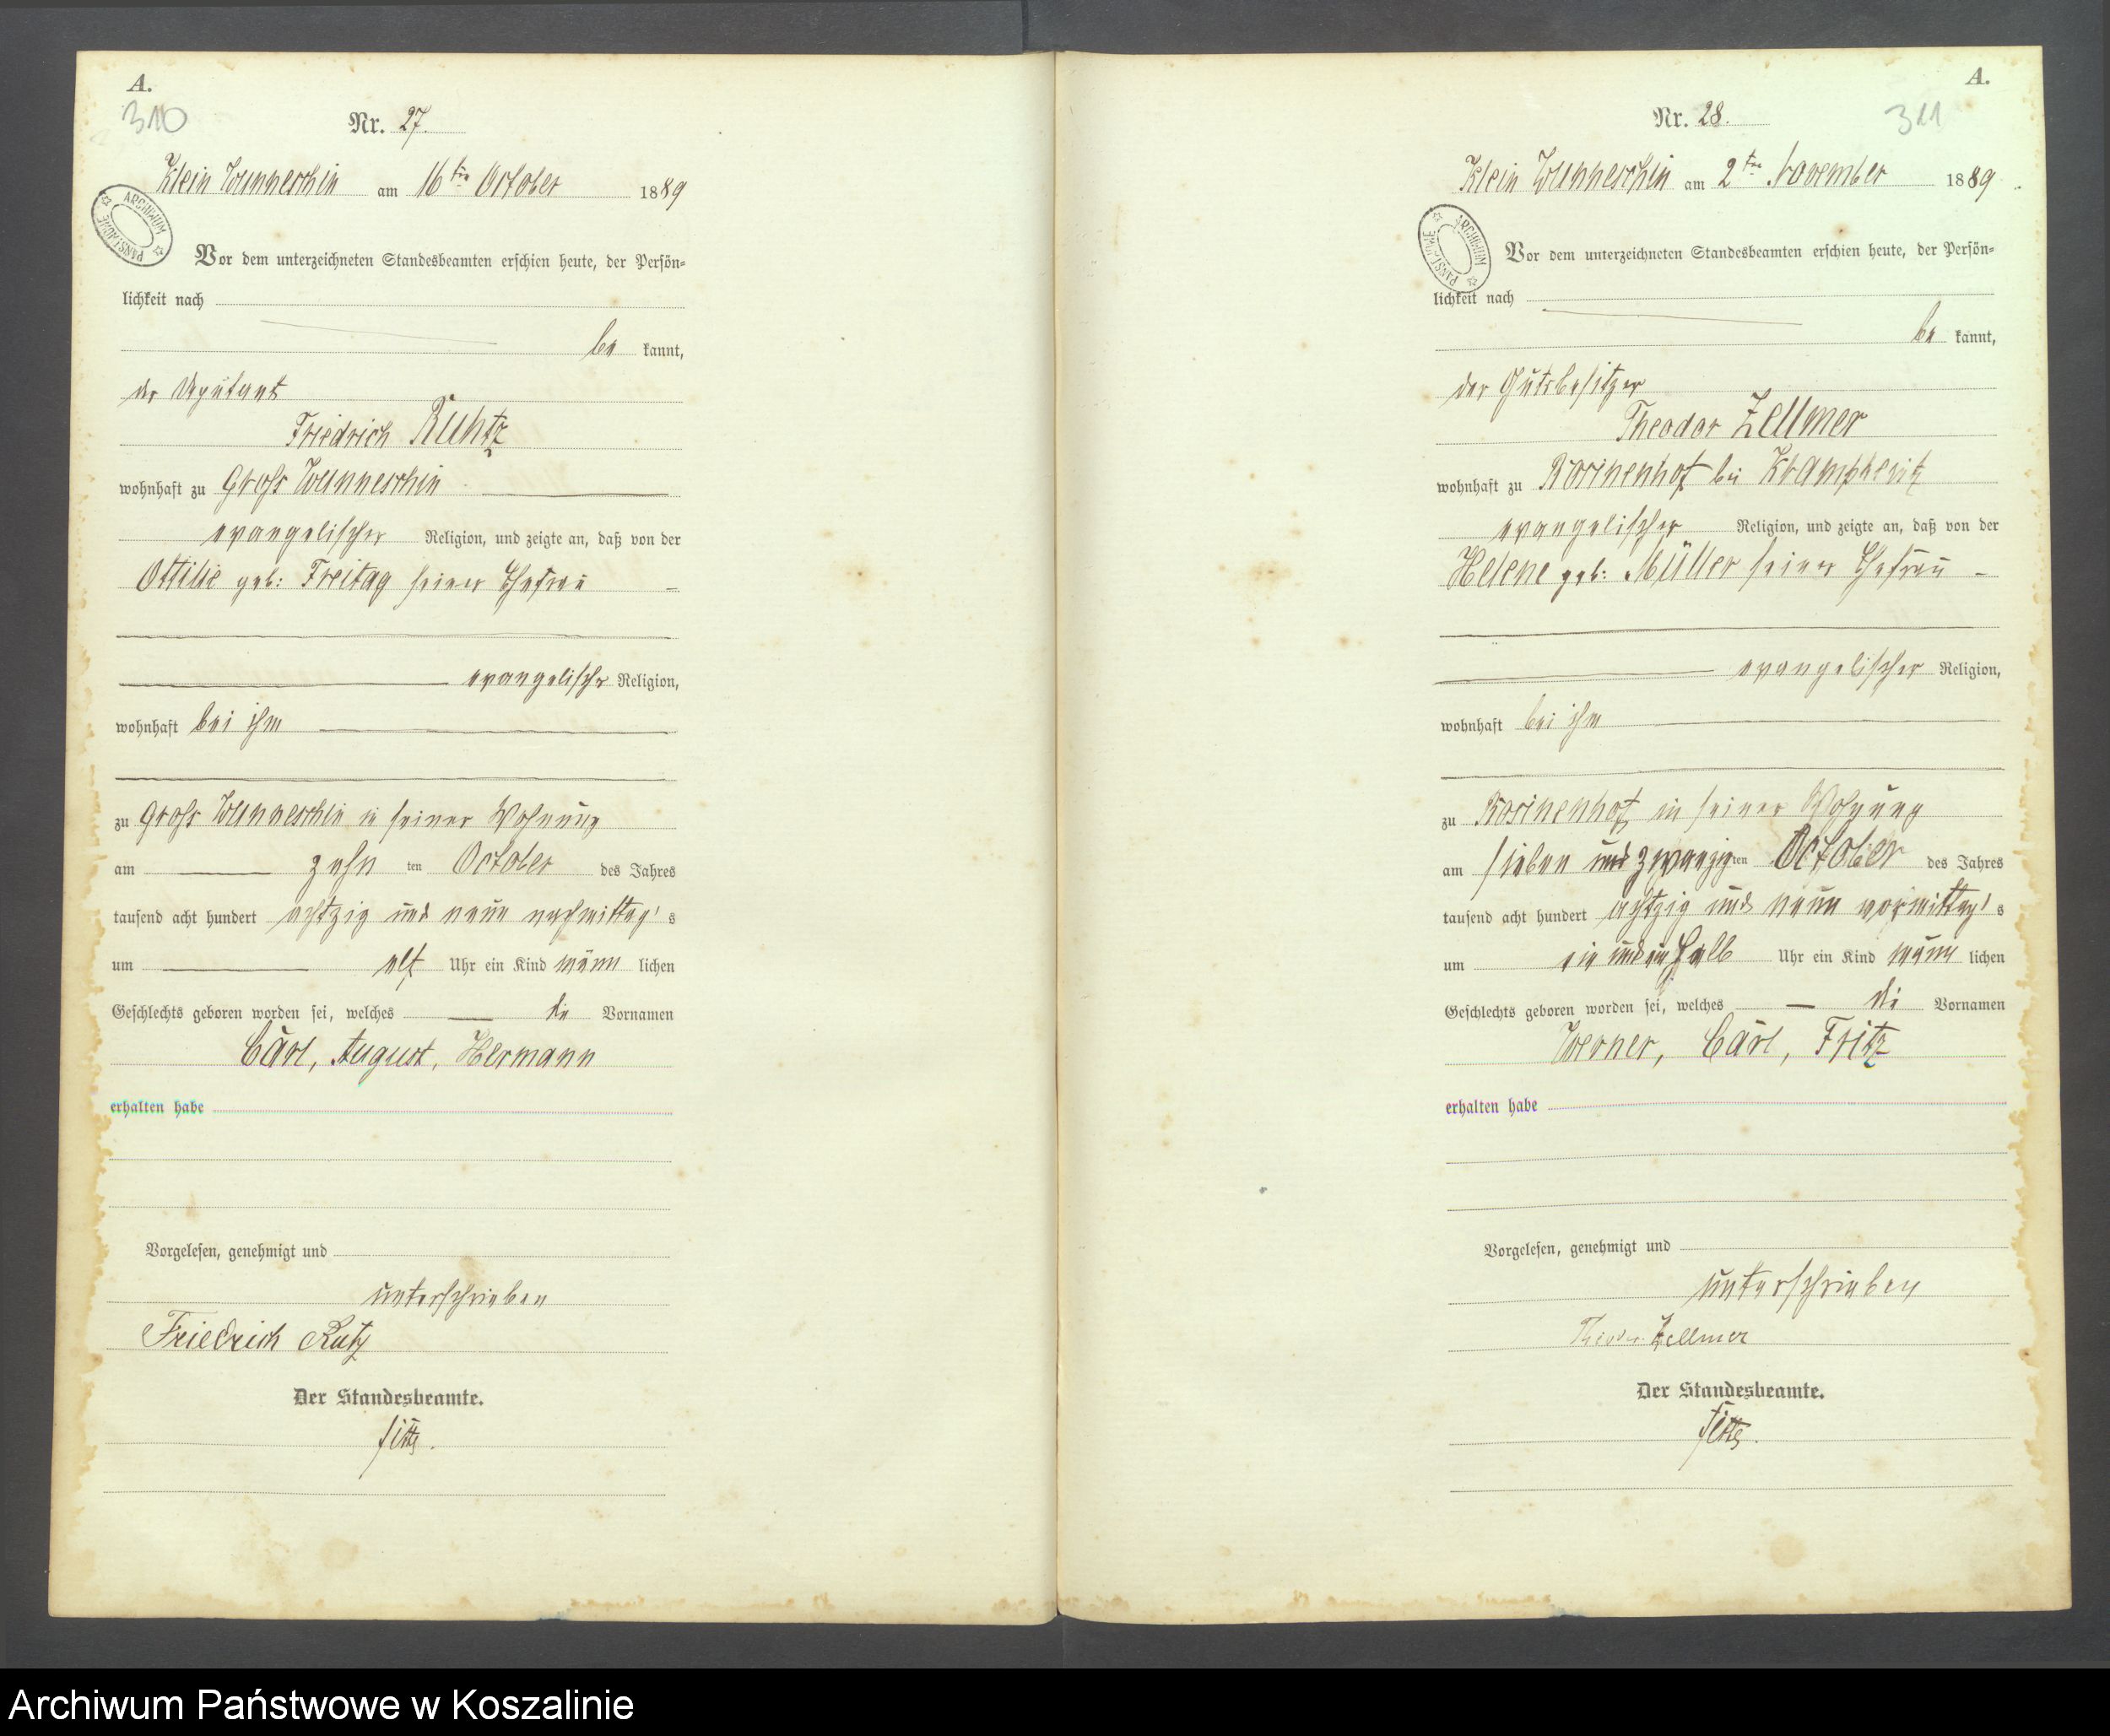 A.
310
Nr. 27.
Klein Wunneschin am 16ten October 1889
ARCHIWUM PAŃSTWOWE
Vor dem unterzeichneten Standesbeamten erschien heute, der Persön=
lichkeit nach
be kannt,
der Deputant
Friedrich Ruhtz
wohnhaft zu Groß Wunneschin
evangelischer Religion, und zeigte an, daß von der
Ottilie geb: Freitag seiner Ehefrau
evangelischer Religion,
wohnhaft bei ihm
zu Groß Wunneschin in seiner Wohnung
am zehn ten October des Jahres
tausend acht hundert achtzig und neun nachmittag's
um elf Uhr ein Kind männ lichen
Geschlechts geboren worden sei, welches die Vornamen
Carl, August, Hermann
erhalten habe
Vorgelesen, genehmigt und
unterschrieben
Friedrich Rutz
Der Standesbeamte.
A.
311
Nr. 28.
Klein Wunneschin am 2ten November 1889
ARCHIWUM PAŃSTWOWE
Vor dem unterzeichneten Standesbeamten erschien heute, der Persön=
lichkeit nach
be kannt,
der Gutsbesitzer
Theodor Zellmer
wohnhaft zu Rosinenhof bei Krampkewitz
evangelischer Religion, und zeigte an, daß von der
Helene geb: Müller seiner Ehefrau
evangelischer Religion,
wohnhaft bei ihm
zu Rosinenhof in seiner Wohnung
am sieben und zwanzig ten October des Jahres
tausend acht hundert achtzig und neun vormittag's
um ein und ein halb Uhr ein Kind männ lichen
Geschlechts geboren worden sei, welches die Vornamen
Werner, Carl, Fritz
erhalten habe
Vorgelesen, genehmigt und
unterschrieben
Theodor Zellmer
Der Standesbeamte.
Archiwum Państwowe w Koszalinie